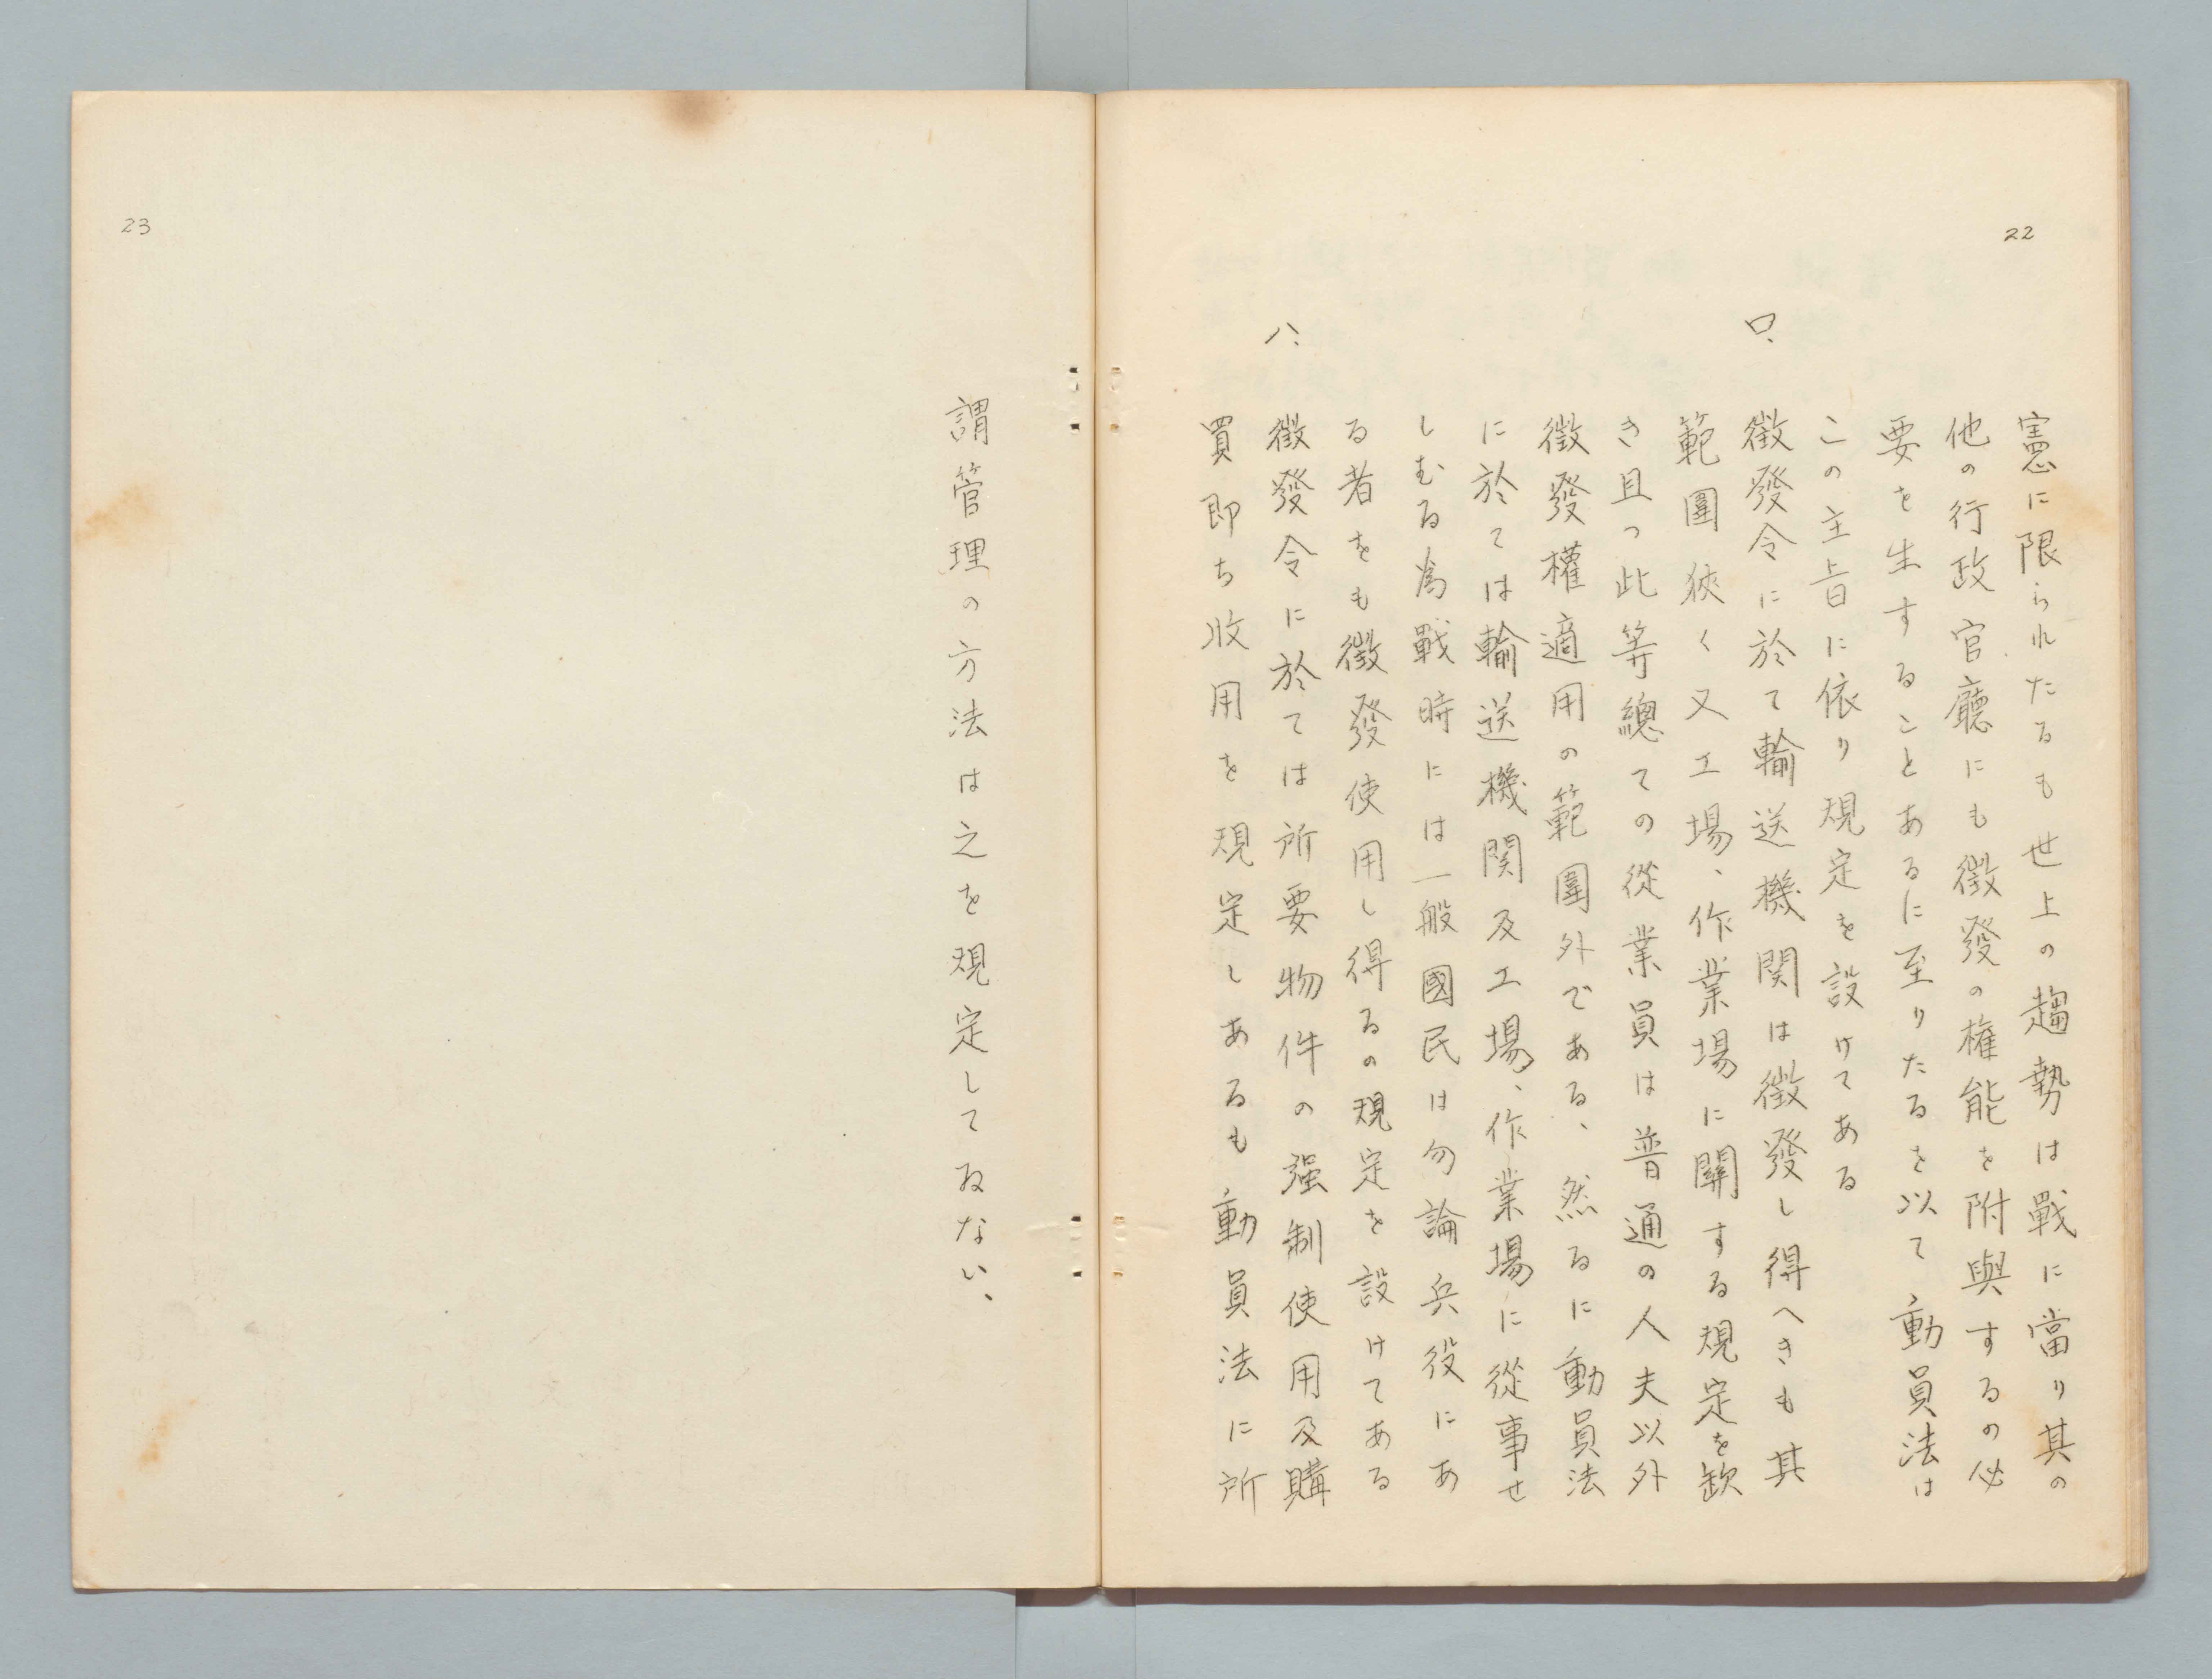 22
憲に限られたるも世上の趨勢は戰に當り其の
他の行政官廳にも徵發の権能を附與するの必
要を生することあるに至りたるを以て動員法は
この主旨に依り規定を設けてある
ロ、徵發令に於て輸送機関は徵發し得へきも其
範圍狹く又工場、作業場に關する規定を欵
き且つ此等總ての從業員は普通の人夫以外
徵發權適用の範圍外である、然るに動員法
に於ては輸送機関及工場、作業場に從事せ
しむる為戰時には一般國民は勿論兵役にあ
る者をも徵發使用し得るの規定を設けてある
ハ、徵發令に於ては所要物件の强制使用及購
買即ち收用を規定しあるも動員法に所
23
謂管理の方法は之を規定してゐない、